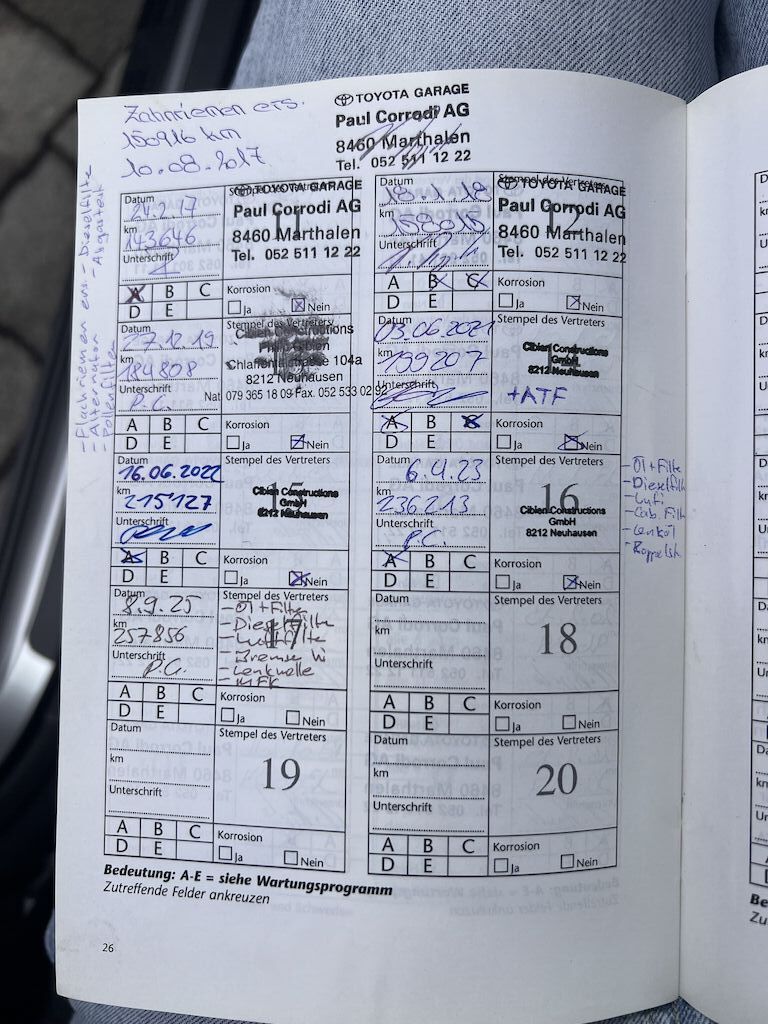 Zahnriemen ers.
150916 km
10.08.2017
TOYOTA GARAGE
Paul Corrodi AG
8460 Marthalen
Tel. 052 511 12 22
- Flachriemen ers. - Dieselfilte
- Alternator - Abgastest
- Pollenfilter
Datum
24.2.17
km
143646
Unterschrift
Stempel des Vertreters
11
TOYOTA GARAGE
Paul Corrodi AG
8460 Marthalen
Tel. 052 511 12 22
A B C
D E
Korrosion
Ja Nein
Datum
18.1.18
km
Unterschrift
Stempel des Vertreters
12
TOYOTA GARAGE
Paul Corrodi AG
8460 Marthalen
Tel. 052 511 12 22
A B C
D E
Korrosion
Ja Nein
Datum
27.12.19
km
184808
Unterschrift
P.C.
Stempel des Vertreters
Cibien Constructions
8212 Neuhausen
Nat 079 365 18 09 Fax. 052 533 02 92
A B C
D E
Korrosion
Ja Nein
Datum
03.06.2021
km
199207
Unterschrift
Stempel des Vertreters
Cibien Constructions
GmbH
8212 Neuhausen
+ATF
A B C
D E
Korrosion
Ja Nein
Datum
16.06.2022
km
215127
Unterschrift
Stempel des Vertreters
15
Cibien Constructions
GmbH
8212 Neuhausen
A B C
D E
Korrosion
Ja Nein
Datum
6.4.23
km
236213
Unterschrift
P.C.
Stempel des Vertreters
16
Cibien Constructions
GmbH
8212 Neuhausen
- Öl + Filte
- Dieselfilt
- Lufi
- Cab. Filt
- Lenköl
A B C
D E
Korrosion
Ja Nein
Datum
8.9.25
km
257856
Unterschrift
P.C.
Stempel des Vertreters
17
- Öl + Filte
- Dieselfilte
- Luftfilte
- Bremse Vi
- Lenkwelle
- MFK
A B C
D E
Korrosion
Ja Nein
Datum
km
Unterschrift
Stempel des Vertreters
18
A B C
D E
Korrosion
Ja Nein
Datum
km
Unterschrift
Stempel des Vertreters
19
A B C
D E
Korrosion
Ja Nein
Datum
km
Unterschrift
Stempel des Vertreters
20
A B C
D E
Korrosion
Ja Nein
Bedeutung: A-E = siehe Wartungsprogramm
Zutreffende Felder ankreuzen
26